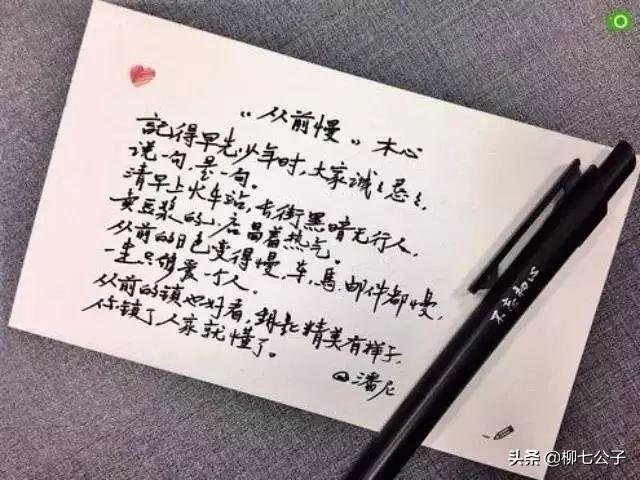 “从前慢” 木心
記得早先少年时,大家诚々恳々,
说一句,是一句。
清早上火车站,长街黑暗无行人,
卖豆浆的小店冒着热气。
从前的日色变得慢,车,馬,邮件都慢,
一生只够爱一个人。
从前的锁也好看,鑰匙精美有样子,
你锁了人家就懂了。
@潘尼
不忘初心
头条 @柳七公子